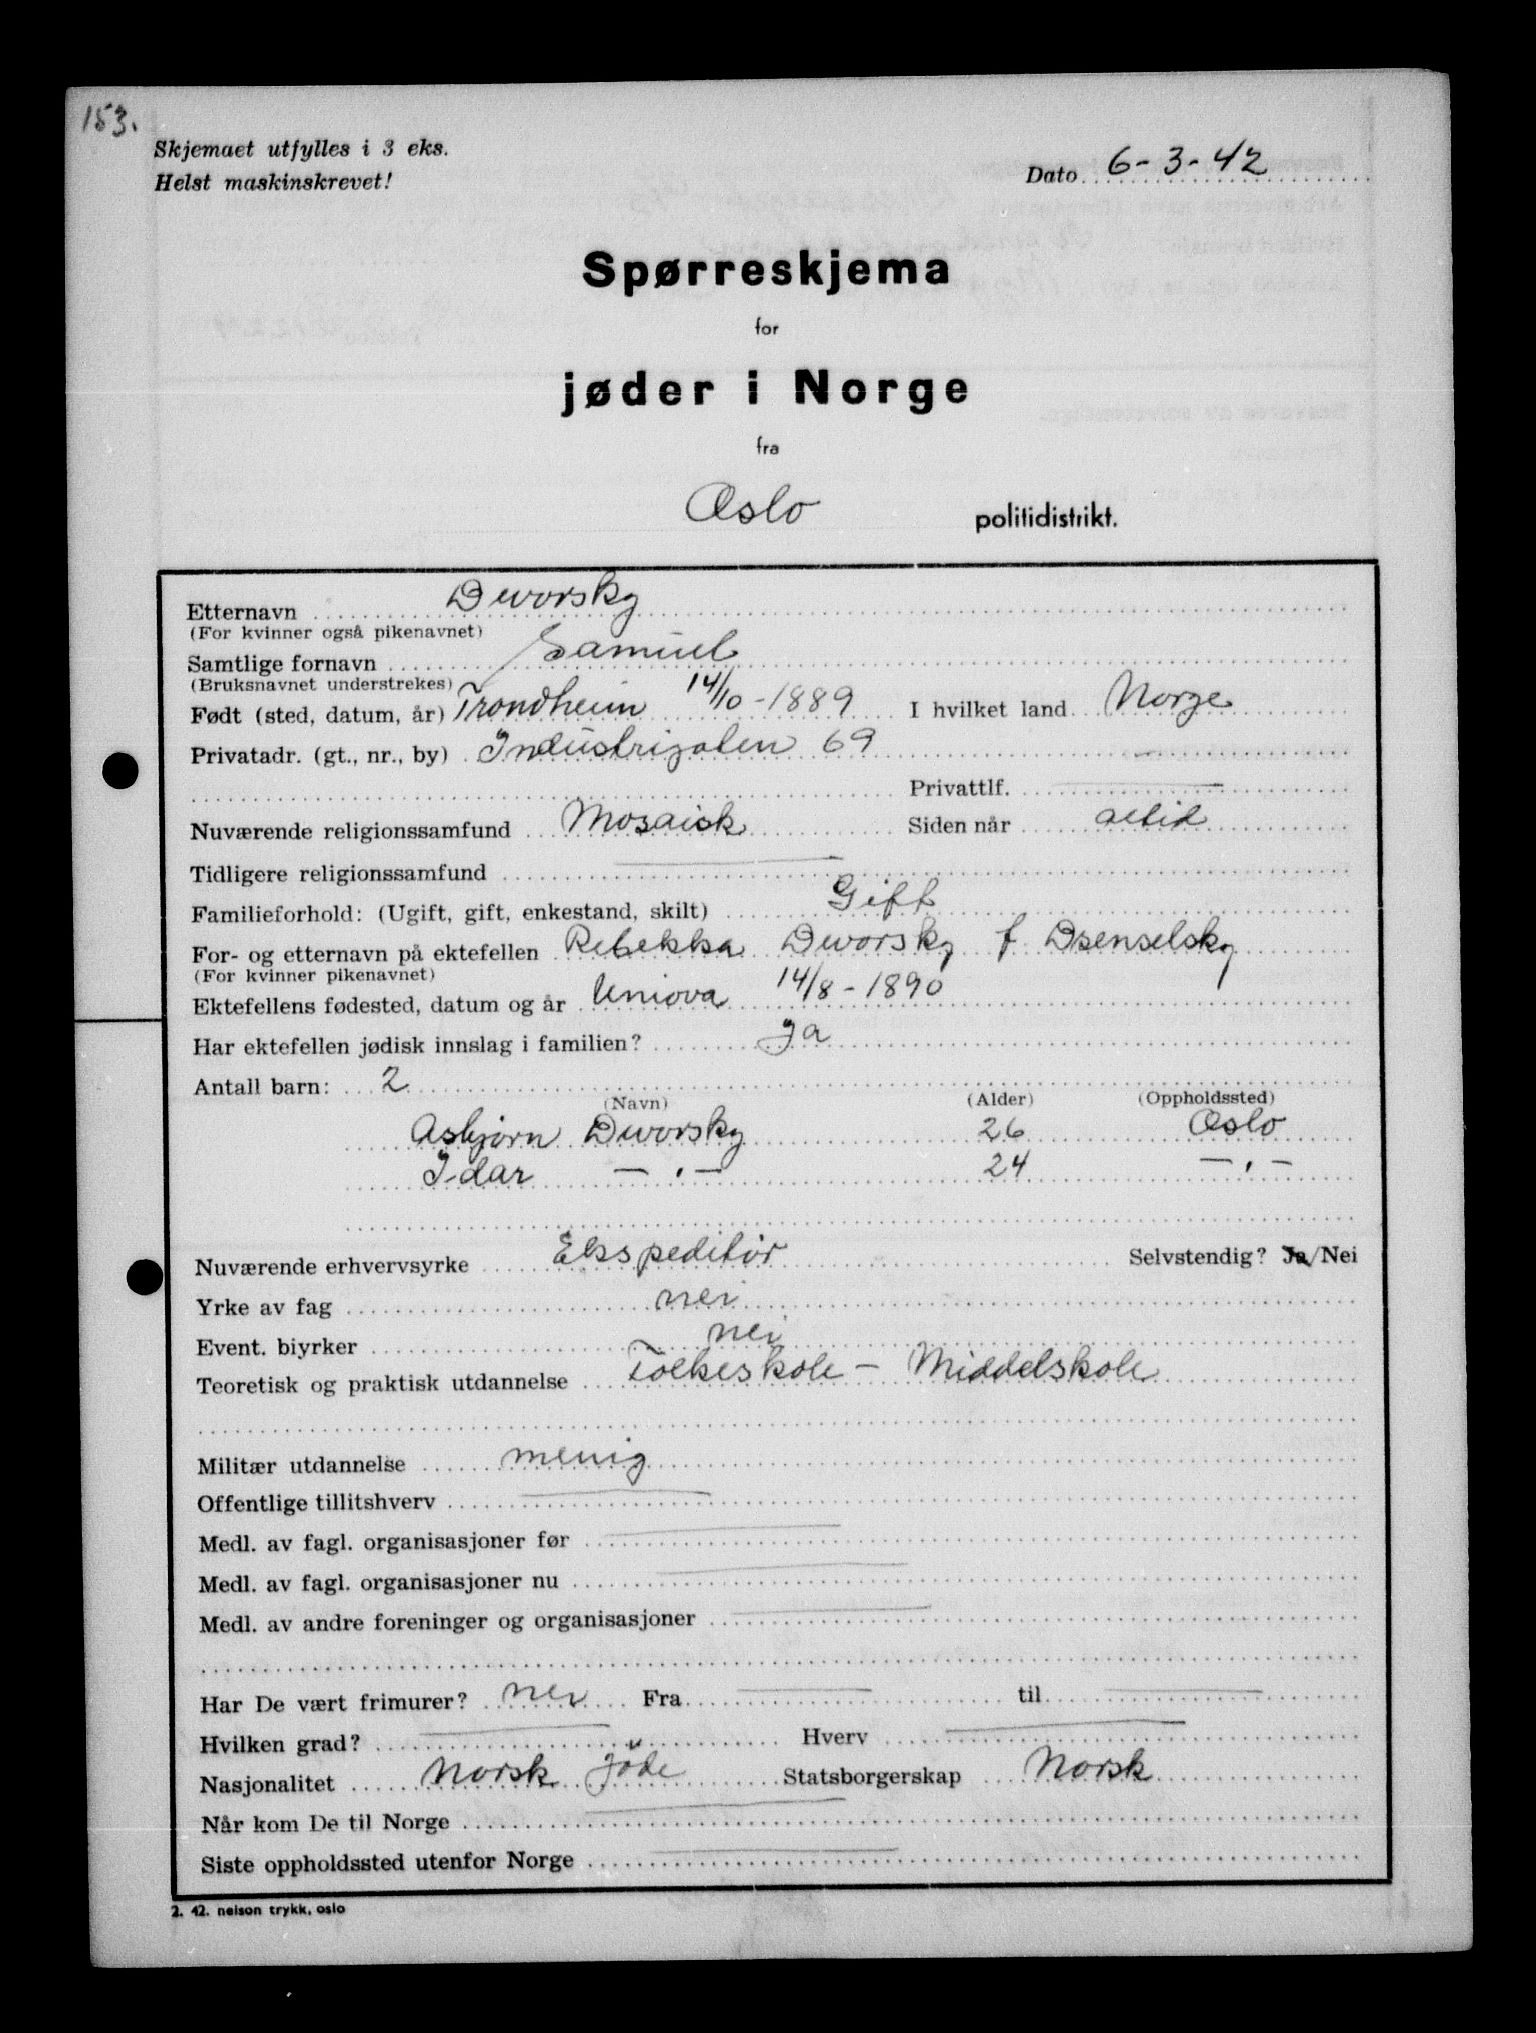 153.
Skjemaet utfylles i 3 eks.
Helst maskinskrevet!
Dato 6-3-42
Spørreskjema
for
jøder i Norge
fra
Oslo politidistrikt.
Etternavn Dworsky
(For kvinner også pikenavnet)
Samtlige fornavn Samuel
(Bruksnavnet understrekes)
Født (sted, datum, år) Trondheim 14/10-1889 I hvilket land Norge
Privatadr. (gt., nr., by) Industrigaten 69
Privattlf. —
Nuværende religionssamfund Mosaisk Siden når altid
Tidligere religionssamfund —
Familieforhold: (Ugift, gift, enkestand, skilt) Gift
For- og etternavn på ektefellen Rebekka Dworsky f Dsenselsky
(For kvinner pikenavnet)
Ektefellens fødested, datum og år Uniova 14/8-1890
Har ektefellen jødisk innslag i familien? Ja
Antall barn: 2
(Navn) (Alder) (Oppholdssted)
Asbjørn Dworsky 26 Oslo
Idar —.— 24 —.—
Nuværende erhvervsyrke Ekspeditør Selvstendig? Ja/Nei
Yrke av fag nei
Event. biyrker nei
Teoretisk og praktisk utdannelse Folkeskole — Middelskole
Militær utdannelse menig
Offentlige tillitshverv —
Medl. av fagl. organisasjoner før —
Medl. av fagl. organisasjoner nu —
Medl. av andre foreninger og organisasjoner —
Har De vært frimurer? nei Fra — til —
Hvilken grad? — Hverv —
Nasjonalitet Norsk Jøde Statsborgerskap Norsk
Når kom De til Norge —
Siste oppholdssted utenfor Norge —
2. 42. nelson trykk, oslo